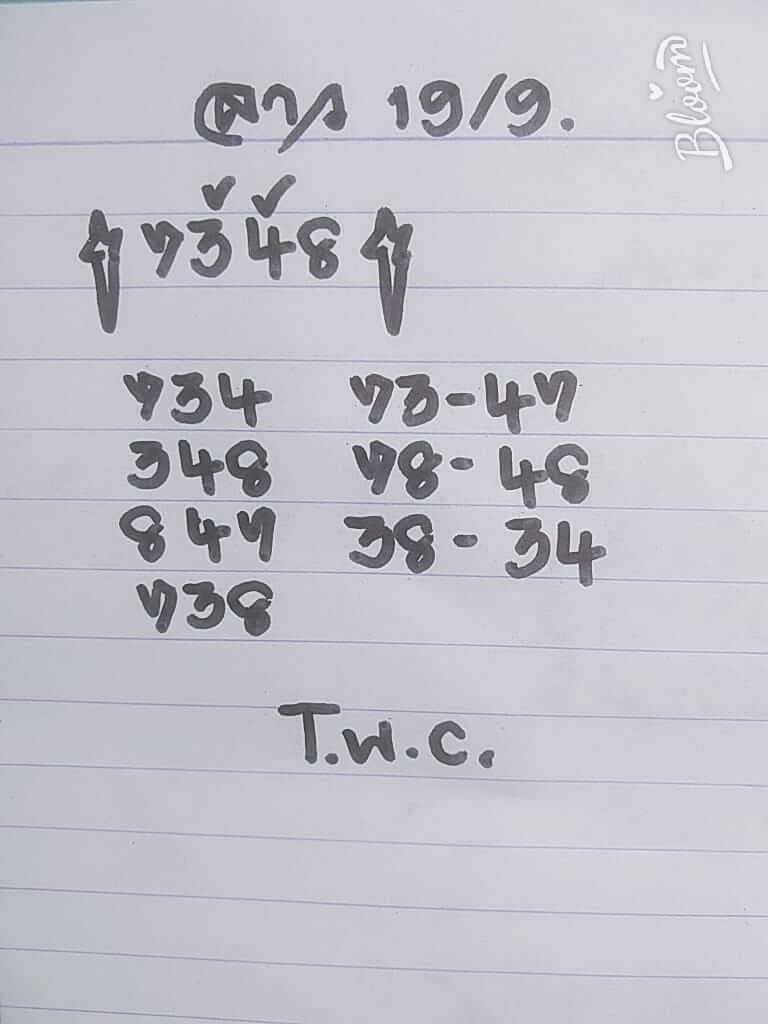 ลาว 19/9.
7348
734 73-47
348 78-48
847 38-34
738
T.W.C.
Bloom